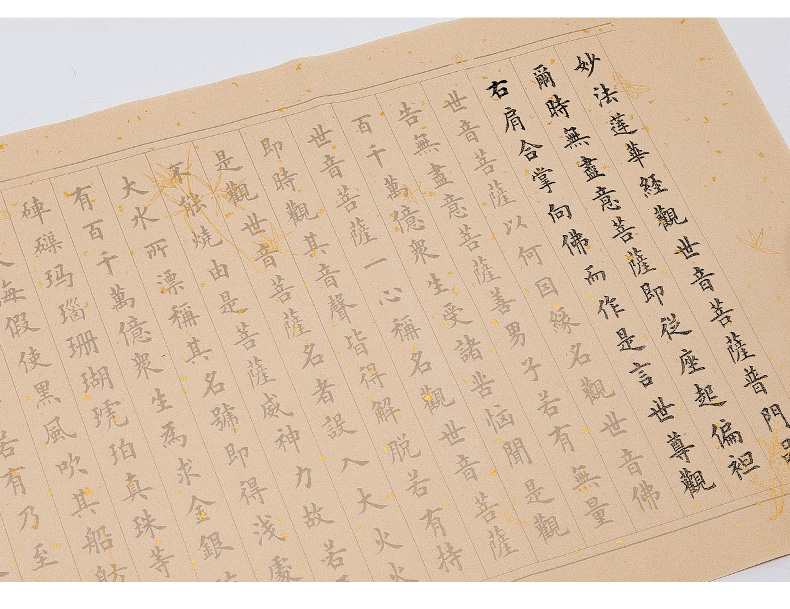 妙法蓮華經觀世音菩薩普門品
爾時無盡意菩薩即從座起偏袒
右肩合掌向佛而作是言世尊觀
世音菩薩以何因緣名觀世音佛
告無盡意菩薩善男子若有無量
百千萬億衆生受諸苦恼聞是觀
世音菩薩一心稱名觀世音菩薩
即時觀其音聲皆得解脱若有持
是觀世音菩薩名者設入大火火
不能燒由是菩薩威神力故若
大水所漂稱其名號即得浅處
有百千萬億衆生為求金銀
硨磲玛瑙珊瑚琥珀真珠等
海假使黑風吹其船舫
若有乃至